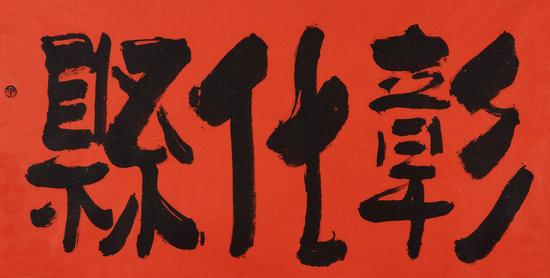 彰化縣